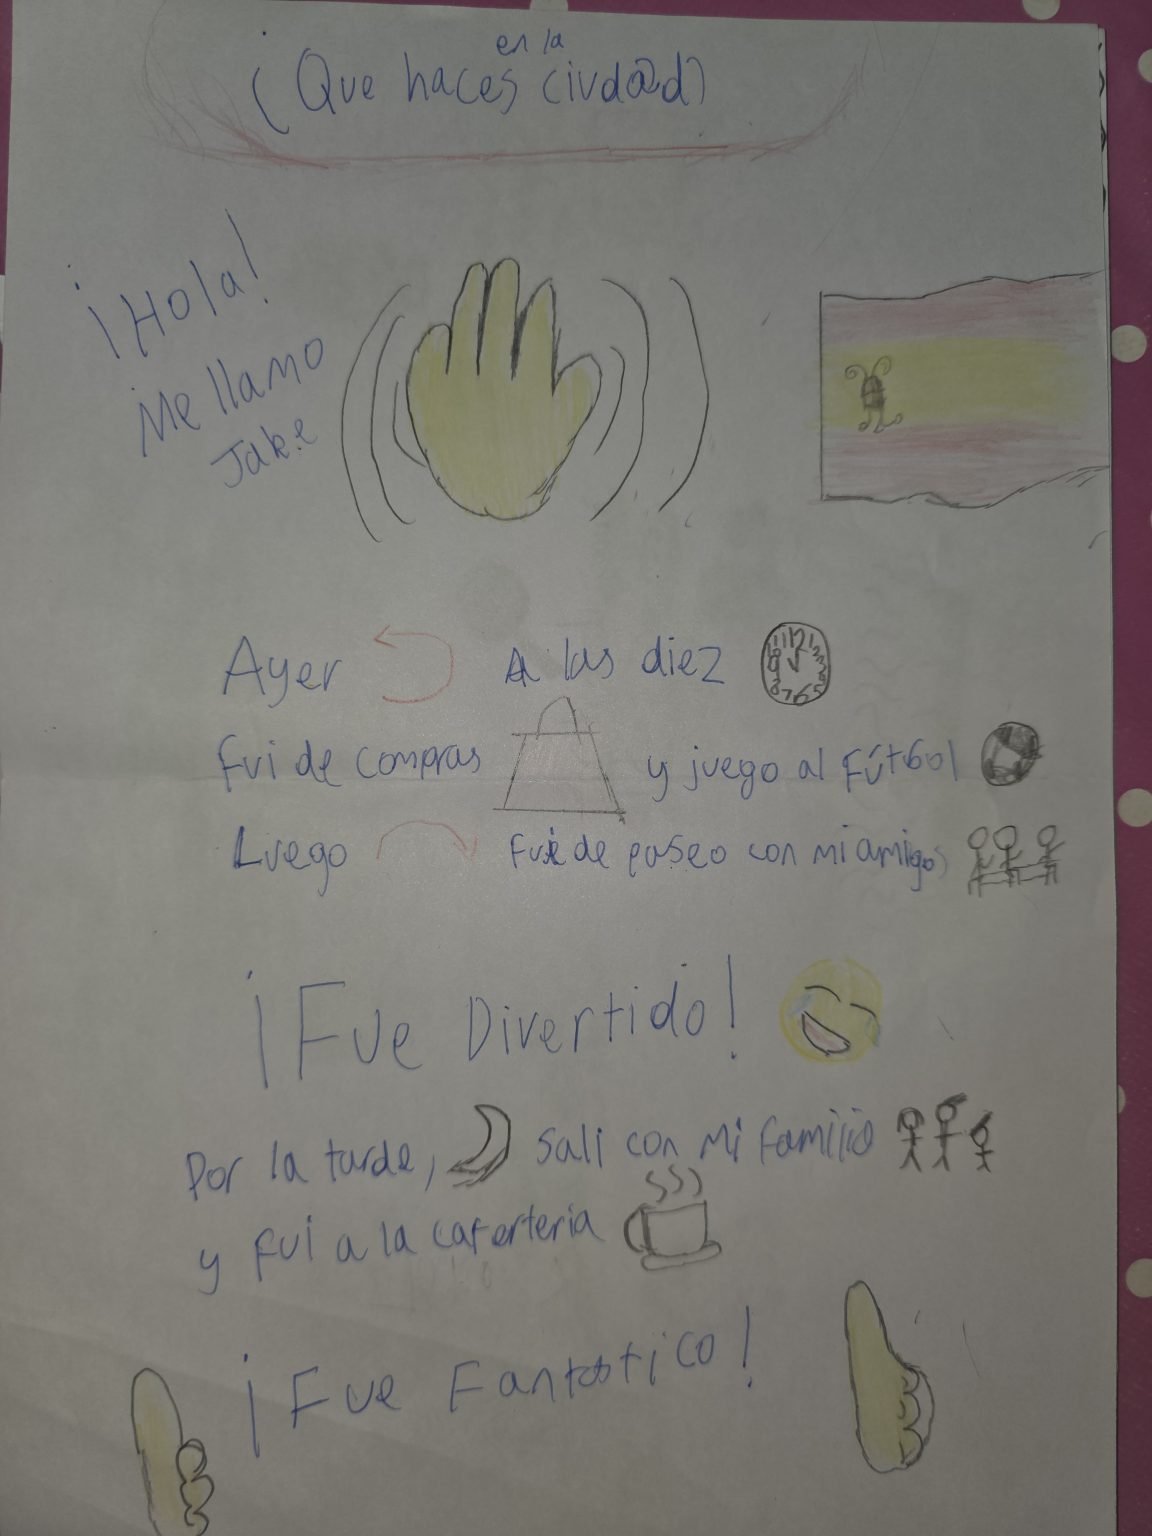 ¿Que haces en la ciud@d?
¡Hola!
Me llamo
Jake
Ayer A las diez
fui de compras y juego al fútbol
Luego fui de paseo con mi amigos
¡Fue Divertido!
Por la tarde, sali con mi familia
y fui a la caferteria
¡Fue Fantastico!